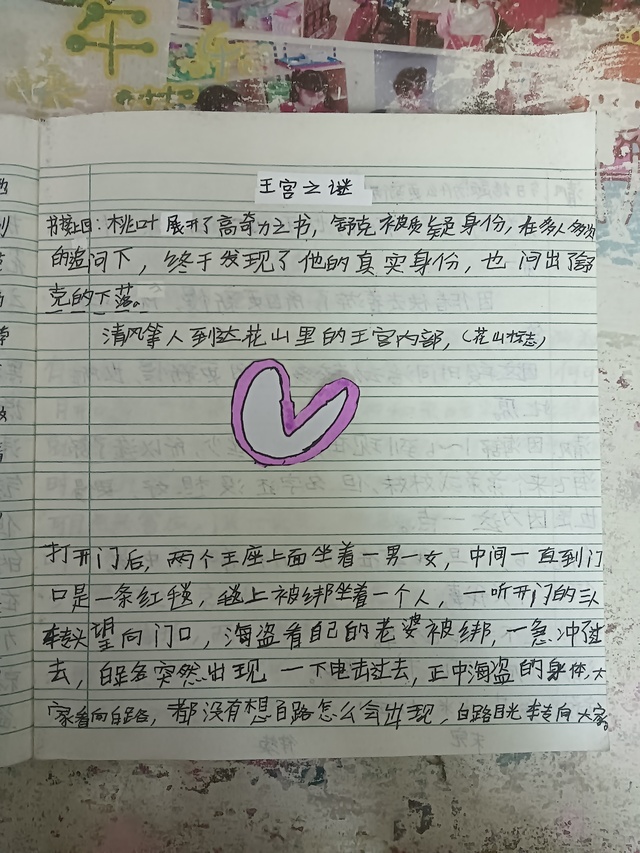 王宫之谜
书接上回：桃叶展开了高奇力之书，舒克被质疑身份，在多人多次
的追问下，终于发现了他的真实身份，也问出了舒
克的下落。
清风等人到达花山里的王宫内部，（花山标志）
打开门后，两个王座上面坐着一男一女，中间一直到门
口是一条红毯，毯上被绑坐着一个人，一听开门的三人
转头望向门口，海盗看自己的老婆被绑，一急冲过
去，白路突然出现一下电击过去，正中海盗的身体，大
家看向白路，都没有想白路怎么会出现，白路目光转向大家。